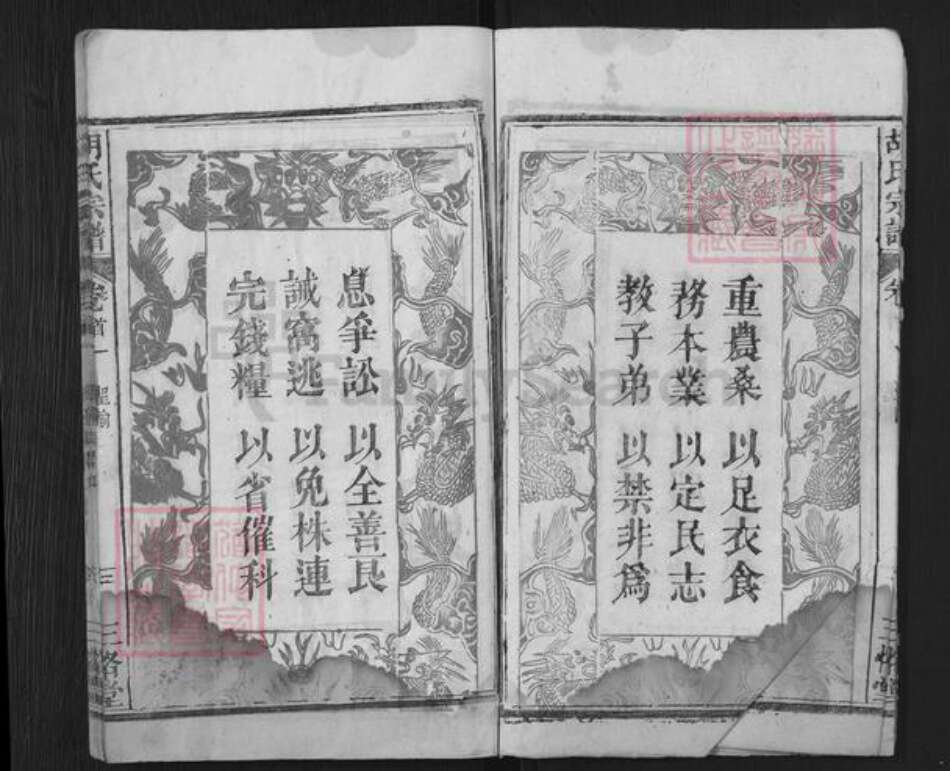 胡氏宗譜
重農桑 以足衣食
務本業 以定民志
教子弟 以禁非爲
息爭訟 以全善良
誡窩逃 以免株連
完錢糧 以省催科
胡氏宗譜 卷首一 聖諭